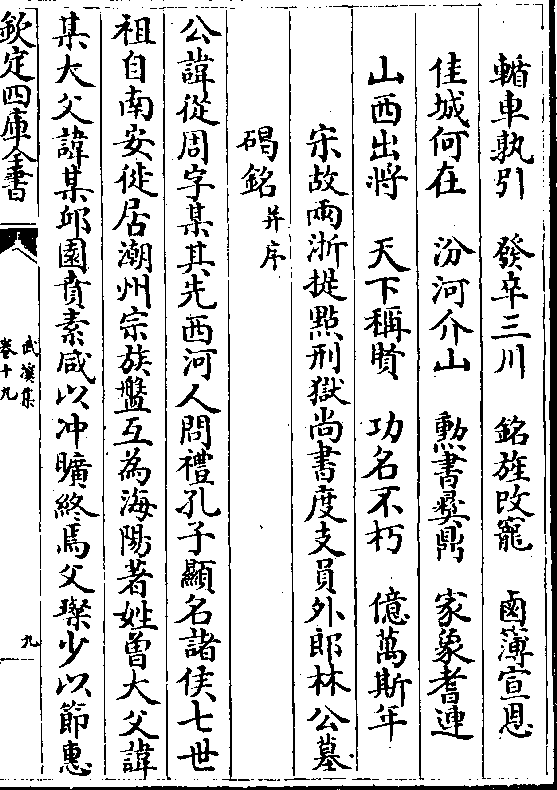 輴車孰引　發卒三川　銘旌改寵　鹵簿宣恩
佳城何在　汾河介山　勲書彛鼎　家象耆連
山西出將　天下稱賢　功名不朽　億萬斯年
宋故兩浙提點刑獄尚書度支員外郎林公墓
碣銘并序
公諱從周字某其先西河人問禮孔子顯名諸侯七世
祖自南安徙居潮州宗族盤互為海陽著姓曾大父諱
某大父諱某邱園賁素咸以冲曠終焉父璨少以節惠
欽定四庫全書
武溪集
卷十九
九